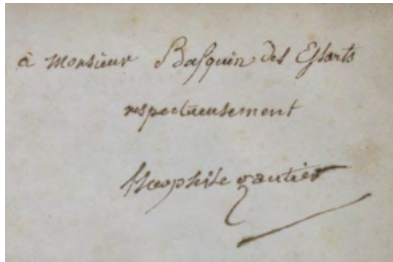 à Monsieur Basquin des Essarts
respectueusement
Théophile gautier